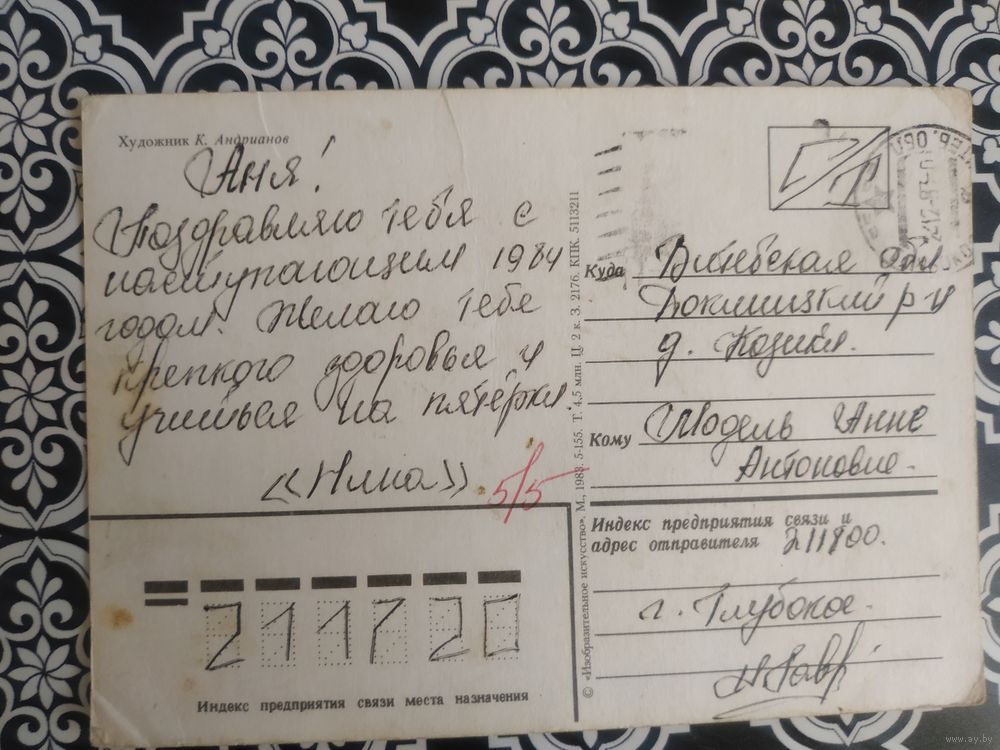 Художник К. Андрианов
Аня!
Поздравляю тебя с
наступающим 1984
годом. Желаю тебе
крепкого здоровья и
учиться на пятёрки.
«Нина»
5/5
Куда Витебская обл
Докшицкий р-н
д. Козики.
Кому Шодель Анне
Антоновне.
Индекс предприятия связи и
адрес отправителя 211800.
г. Глубокое.
211720
Индекс предприятия связи места назначения
© «Изобразительное искусство». М., 1983. 5-155. Т. 4,5 млн. Ц. 2 к. З. 2176. КПК. 5113211
www.ay.by